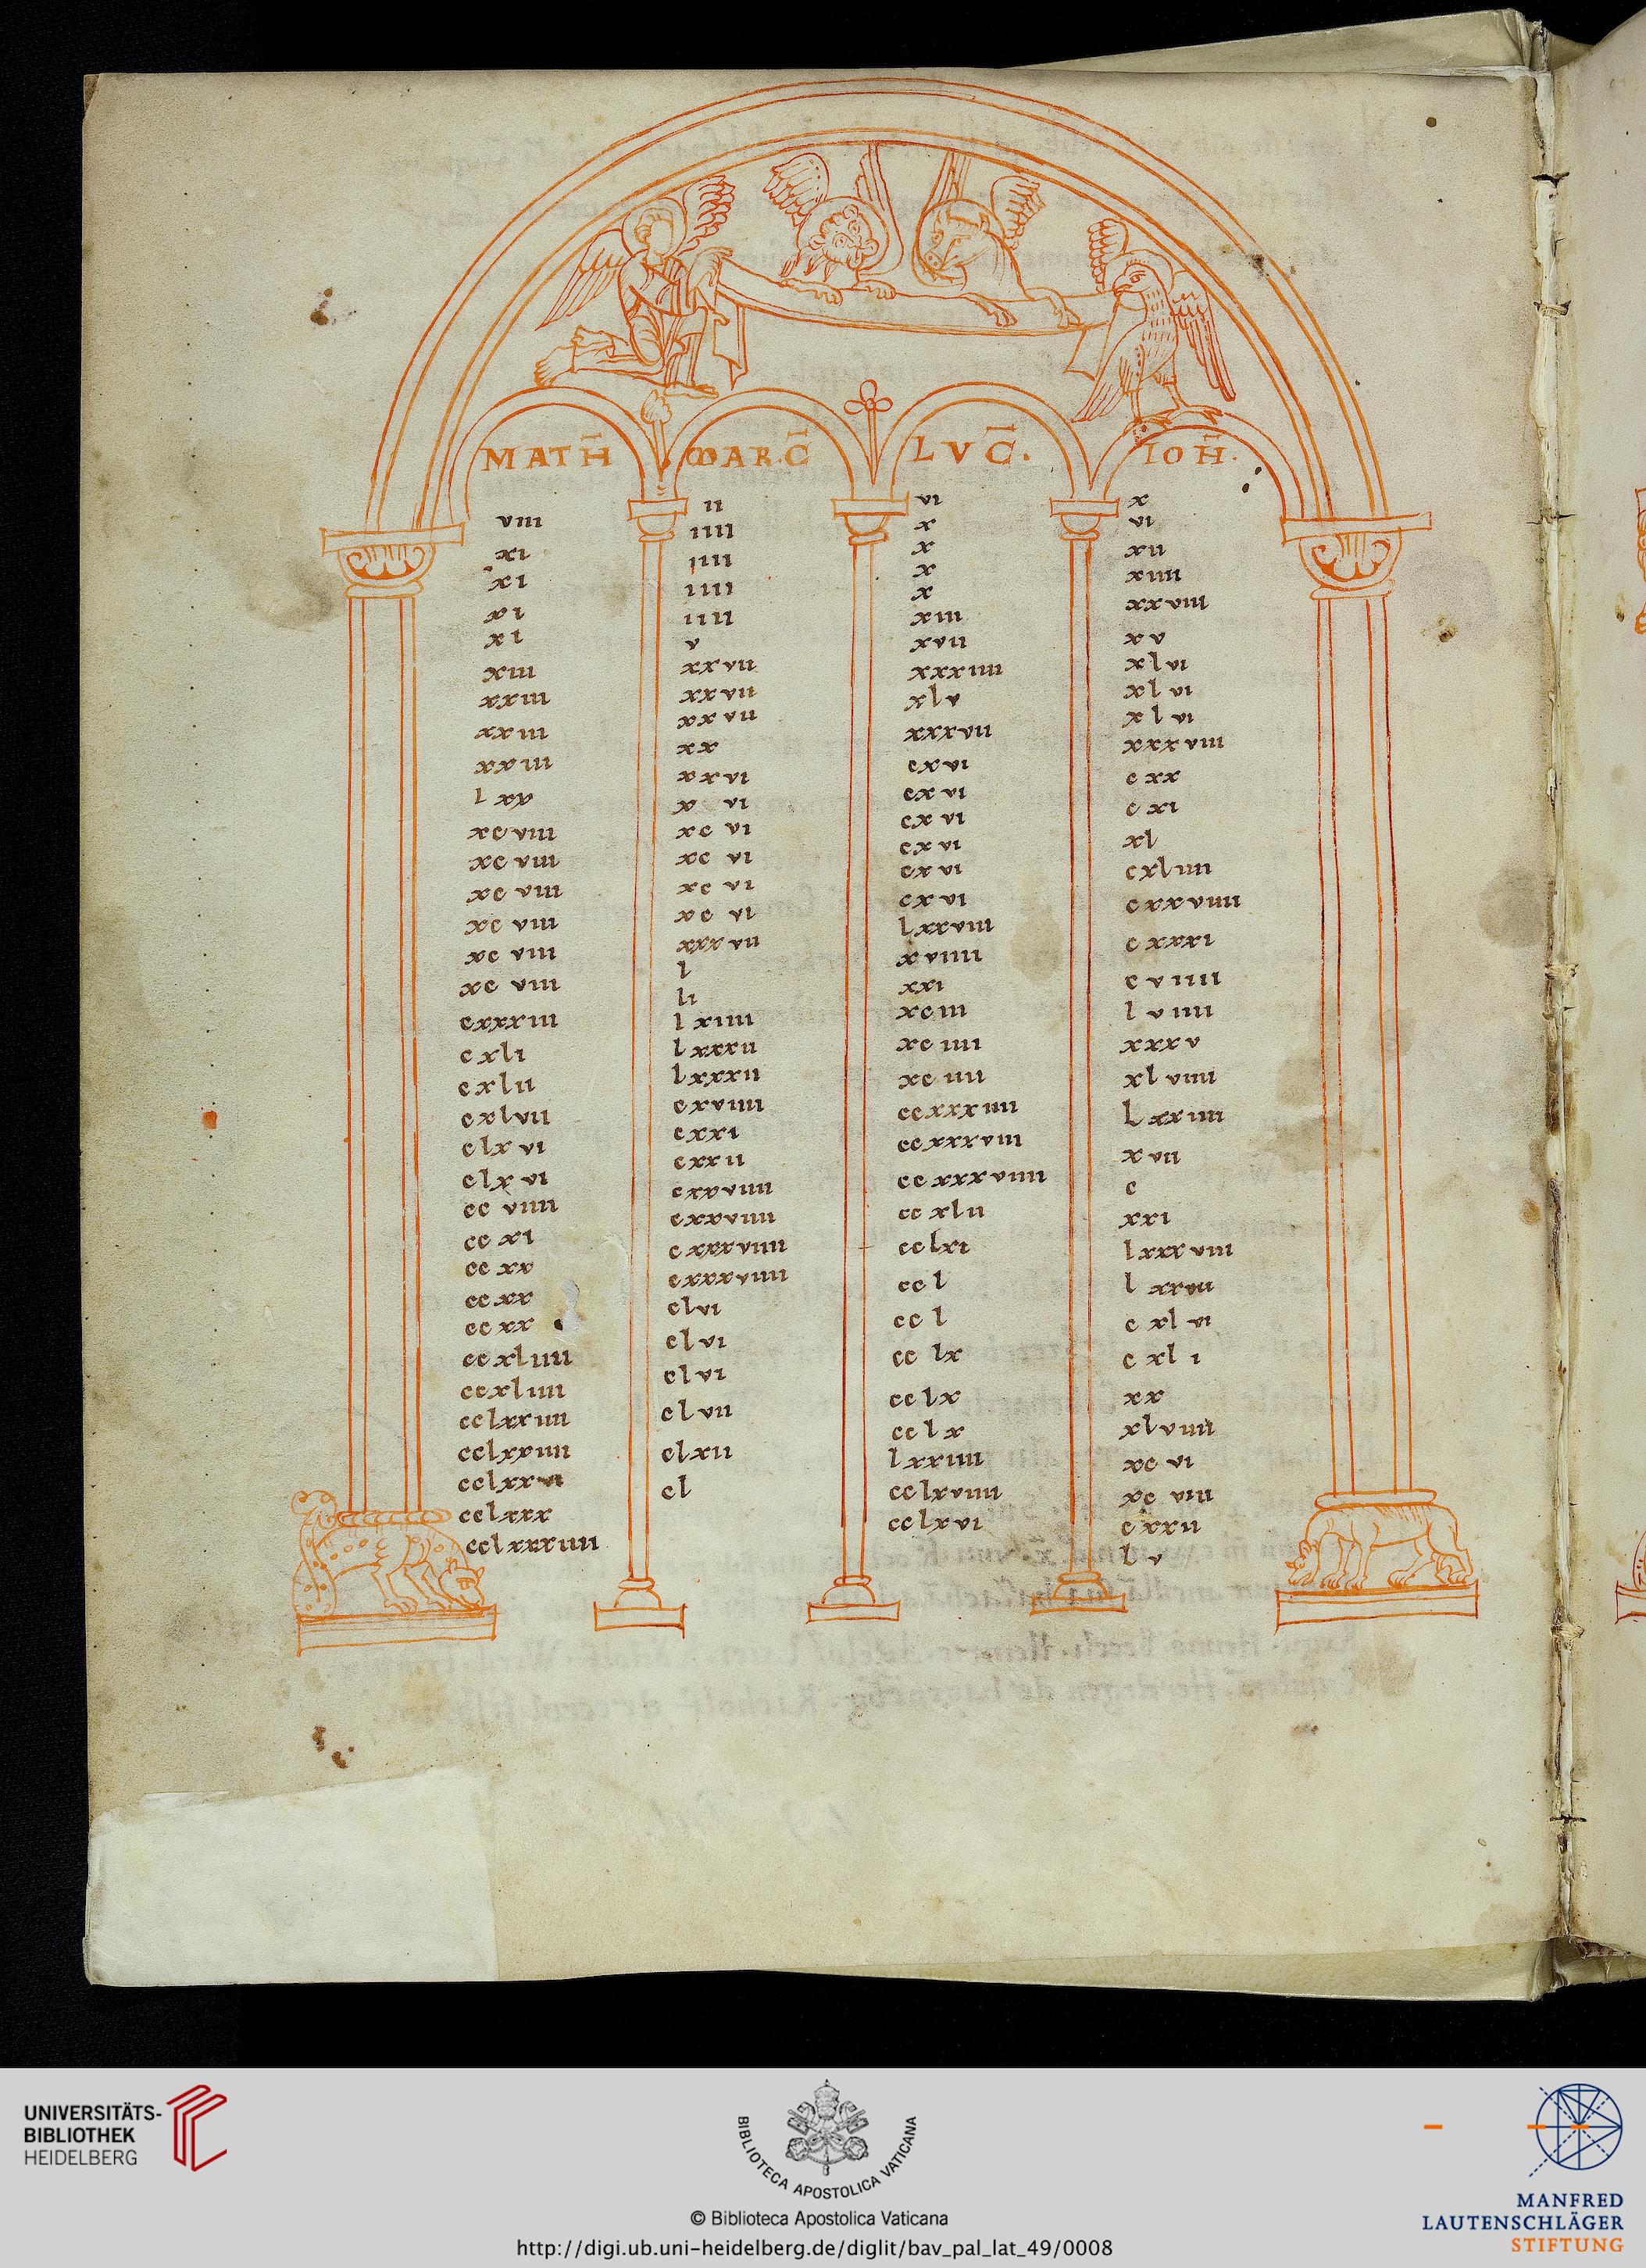 MATH̄
viii
xi
xi
xi
xi
xiii
xxiii
xxiii
xxiii
lxx
xcviii
xcviii
xcviii
xcviii
xcviii
xcviii
cxxxiii
cxli
cxlii
cxlvii
clxvi
clxvi
ccviiii
ccxi
ccxx
ccxx
ccxx
ccxliiii
ccxliiii
cclxxiiii
cclxxiiii
cclxxvi
cclxxx
cclxxxiiii
MARC̄
ii
iiii
iiii
iiii
iiii
v
xxvii
xxvii
xxvii
xx
xxvi
x vi
xcvi
xcvi
xcvi
xcvi
xxxvii
l
li
lxiiii
lxxxii
lxxxii
cxviiii
cxxi
cxxii
cxxviiii
cxxviiii
cxxxviiii
cxxxviiii
clvi
clvi
clvi
clvii
clxii
cl
LVC̄.
vi
x
x
x
x
xiii
xvii
xxxiiii
xlv
xxxvii
cxvi
cxvi
cxvi
cxvi
cxvi
cxvi
lxxviii
xviiii
xxi
xciii
xciiii
xciiii
ccxxxiiii
ccxxxviii
ccxxxviiii
ccxlii
cclxi
ccl
ccl
cclx
cclx
cclx
lxxiiii
cclxviiii
cclxvi
IOH̄.
x
vi
xii
xiiii
xxviii
xv
xlvi
xlvi
xlvi
xxxviii
cxx
cxi
xl
cxliiii
cxxviiii
cxxxi
cviiii
lviiii
xxxv
xlviiii
lxxiiii
xvii
c
xxi
lxxxviii
lxxvii
cxlvi
cxli
xx
xlviiii
xcvi
xcviii
cxxii
lv
UNIVERSITÄTS-
BIBLIOTHEK
HEIDELBERG
BIBLIOTECA APOSTOLICA VATICANA
© Biblioteca Apostolica Vaticana
http://digi.ub.uni-heidelberg.de/diglit/bav_pal_lat_49/0008
MANFRED
LAUTENSCHLÄGER
STIFTUNG